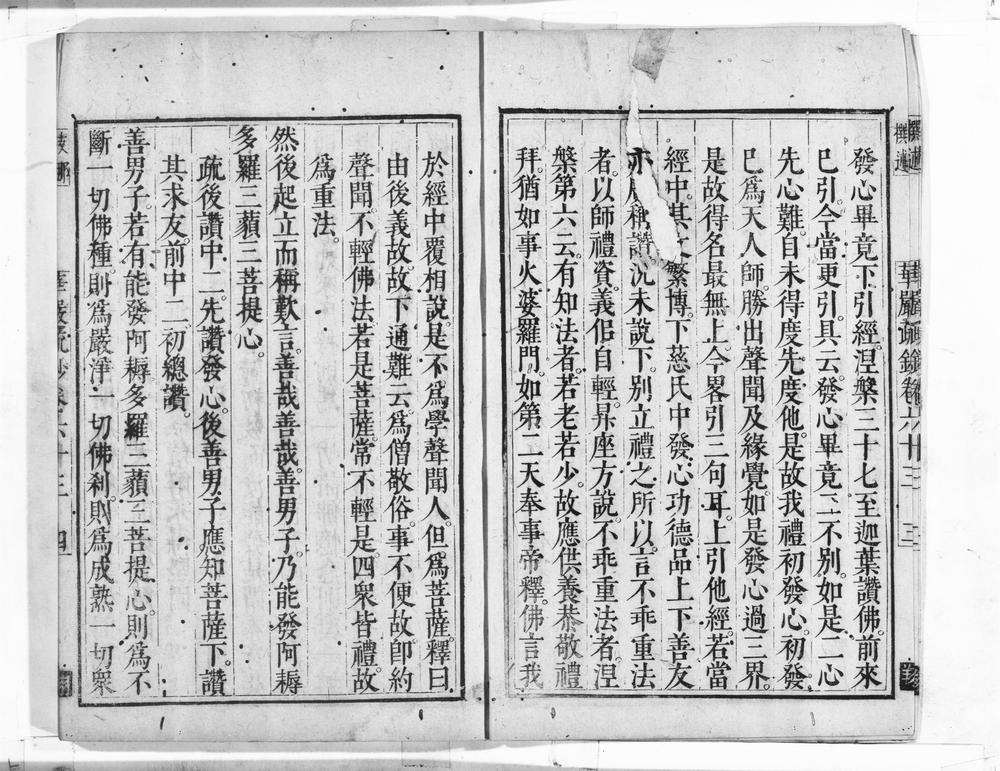 華嚴疏鈔卷六十三 三
發心畢竟下引經涅槃三十七至迦葉讚佛前來
已引今當更引具云發心畢竟二不別如是二心
先心難自未得度先度他是故我禮初發心初發
已為天人師勝出聲聞及緣覺如是發心過三界
是故得名最無上今畧引三句耳上引他經若當
經中其文繁博下慈氏中發心功德品上下善友
亦廣稱讚況未說下別立禮之所以言不乖重法
者以師禮資義但自輕昇座方說不乖重法者涅
槃第六云有知法者若老若少故應供養恭敬禮
拜猶如事火婆羅門如第二天奉事帝釋佛言我
於經中覆相說是不為學聲聞人但為菩薩釋曰
由後義故故下通難云為僧敬俗事不便故卽約
聲聞不輕佛法若是菩薩常不輕是四衆皆禮故
為重法
然後起立而稱歎言善哉善哉善男子乃能發阿耨
多羅三藐三菩提心
疏後讚中二先讚發心後善男子應知菩薩下讚
其求友前中二初總讚
善男子若有能發阿耨多羅三藐三菩提心則為不
斷一切佛種則為嚴淨一切佛刹則為成熟一切衆
華嚴疏鈔卷六十三 四